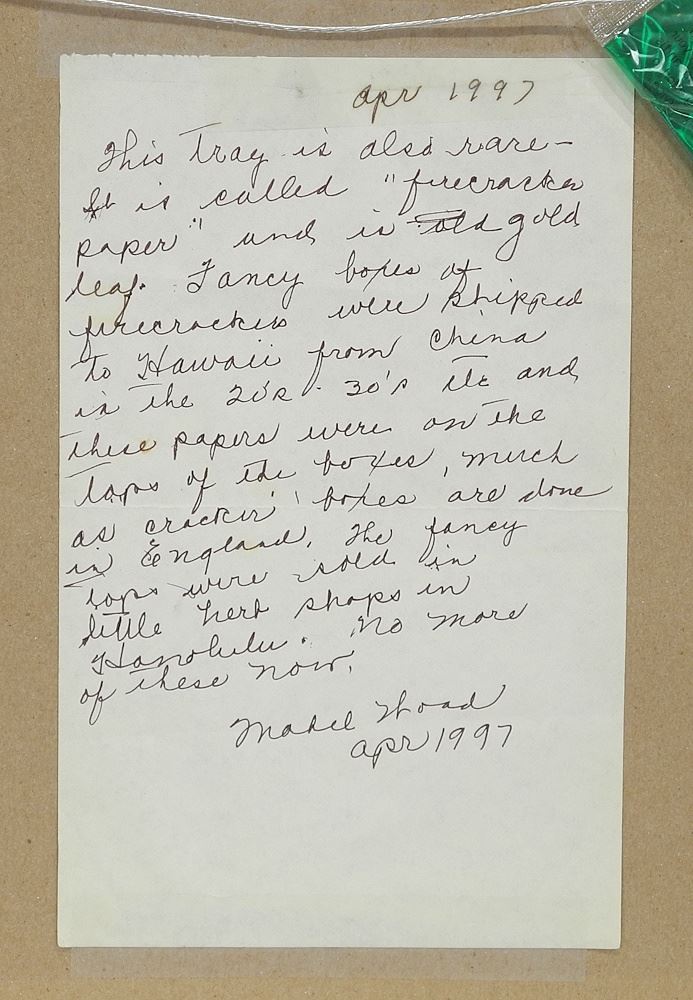 Apr 1997
This tray is also rare-
It is called "firecracker
paper" and is old gold
leaf. Fancy boxes of
firecrackers were shipped
to Hawaii from China
in the 20's - 30's etc and
these papers were on the
tops of the boxes, much
as cracker boxes are done
in England. The fancy
tops were sold in
little herb shops in
Honolulu. No more
of these now.
Mabel Wood
Apr 1997